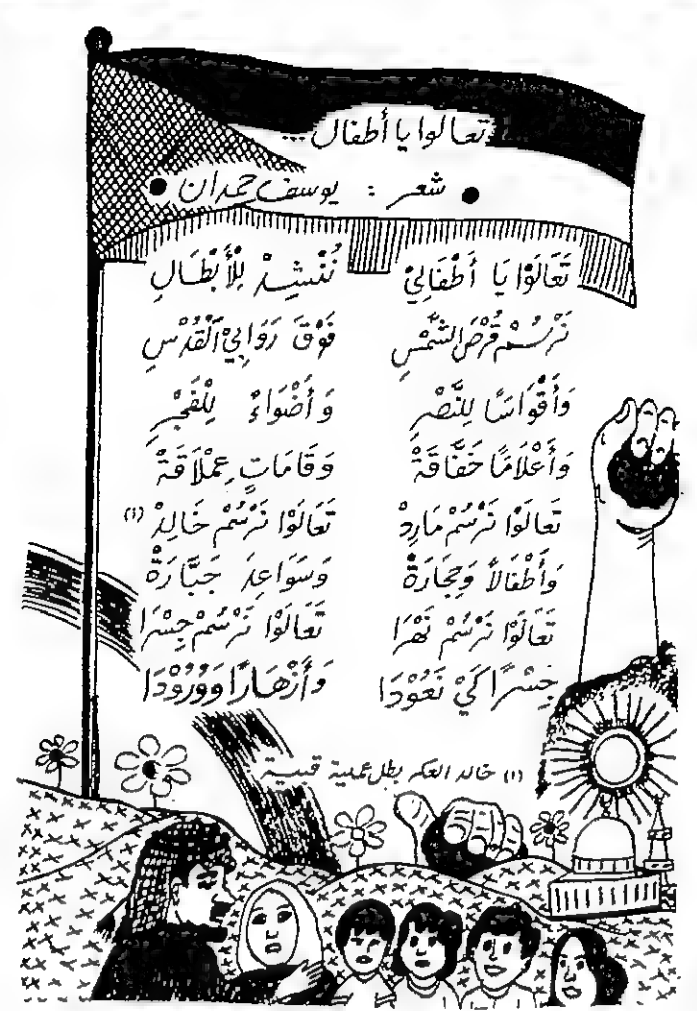 تعالوا يا أطفال...
● شعر : يوسف حمدان ●
تَعَالَوْا يَا أَطْفَالِيْ نُنْشِدْ لِلْأَبْطَالِ
نَرْسُمْ قُرْصَ الشَّمْسِ فَوْقَ رَوَابِيْ الْقُدْسِ
وَأَقْوَاسًا لِلنَّصْرِ وَأَضْوَاءً لِلْفَجْرِ
وَأَعْلَامًا خَفَّاقَةْ وَقَامَاتٍ عِمْلَاقَةْ
تَعَالَوْا نَرْسُمْ مَارِدْ تَعَالَوْا نَرْسُمْ خَالِدْ (١)
وَأَطْفَالاً وَحِجَارَةْ وَسَوَاعِدَ جَبَّارَةْ
تَعَالَوْا نَرْسُمْ نَهْرَا تَعَالَوْا نَرْسُمْ جِسْرَا
جِسْرًا كَيْ نَعُوْدَا وَأَزْهَارًا وَوُرُوْدَا
(١) خالد العكر بطل عملية قبية